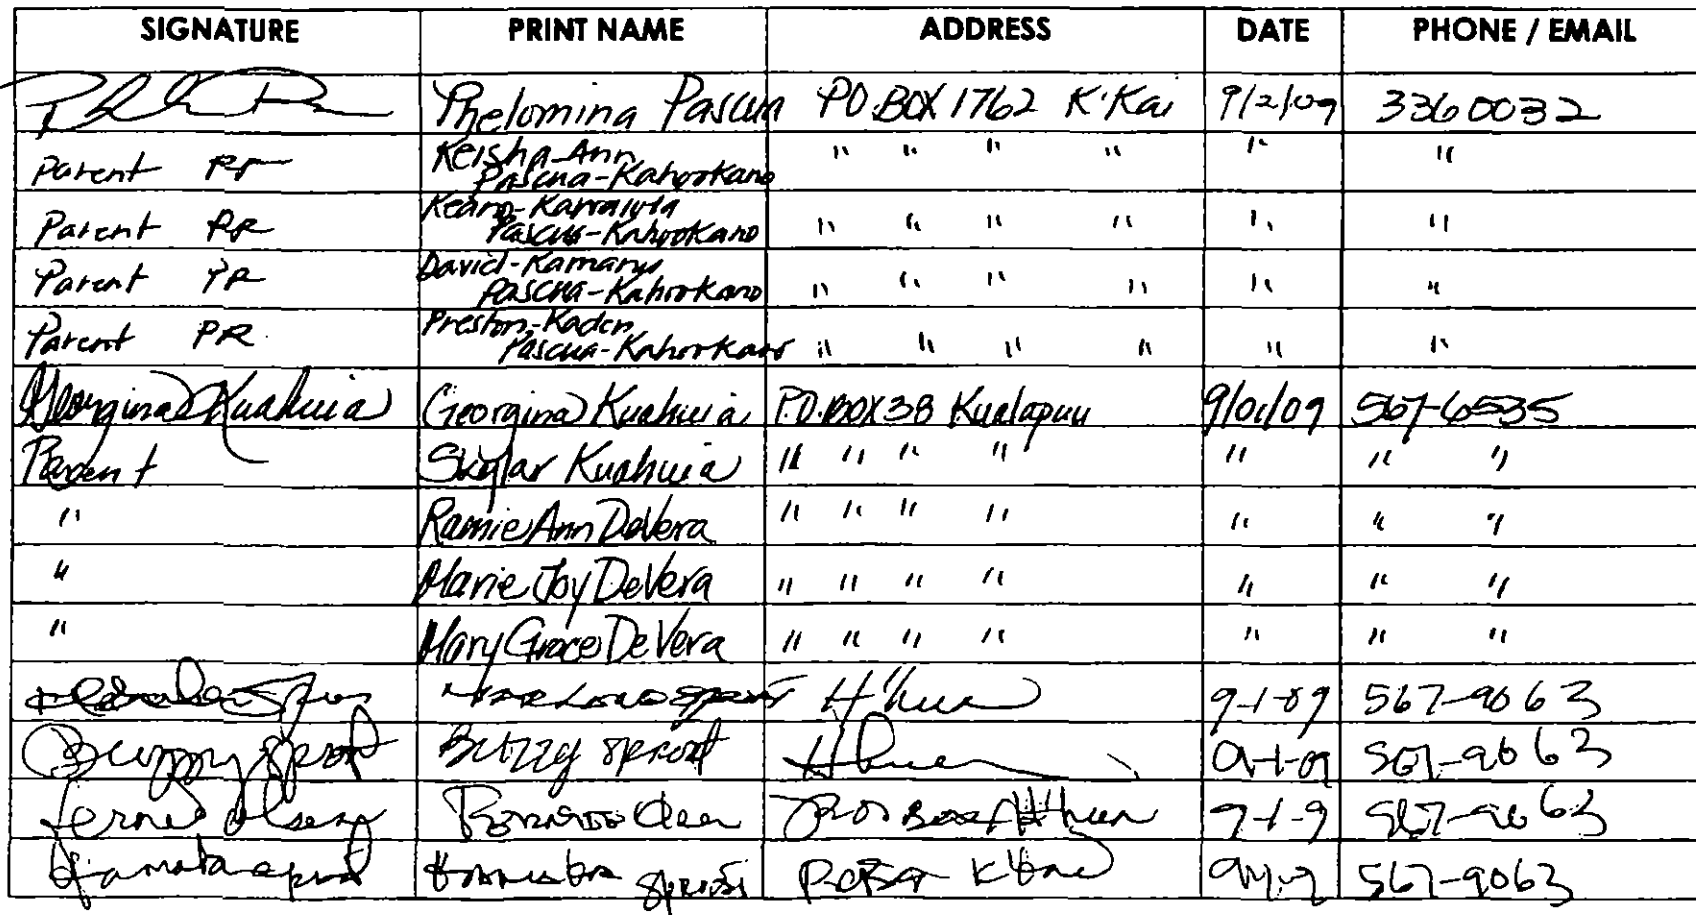 SIGNATURE PRINT NAME ADDRESS DATE PHONE / EMAIL
Phelomina Pascua P.O. BOX 1762 K'Kai 9/2/09 3360032
Parent PR Keisha-Ann " " " " " "
Pascua-Kahookano
Parent PR " " " " " "
Pascua-Kahookano
Parent PR " " " " " "
Pascua-Kahookano
Parent PR Preston-Kaden " " " " " "
Pascua-Kahookano
Georgina Kuahuia Georgina Kuahuia P.O. BOX 38 Kualapuu 9/01/09 567-6535
Parent Skylar Kuahuia " " " " " " "
" Ramie Ann DeVera " " " " " " "
" Marie Joy DeVera " " " " " " "
" Mary Grace DeVera " " " " " " "
9-1-09 567-9063
Buzzy Sproat Buzzy Sproat 9-1-09 567-9063
9-1-9 567-9063
567-9063